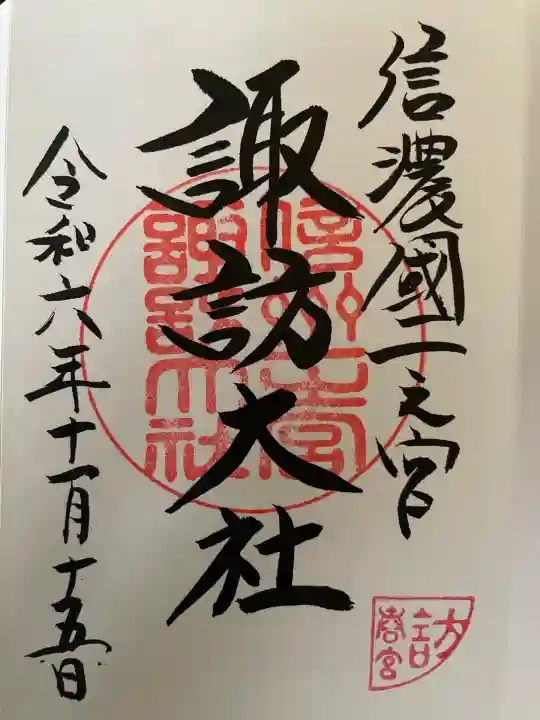 信濃國一之宮
諏訪大社
令和六年十一月十五日
諏訪大社
春宮